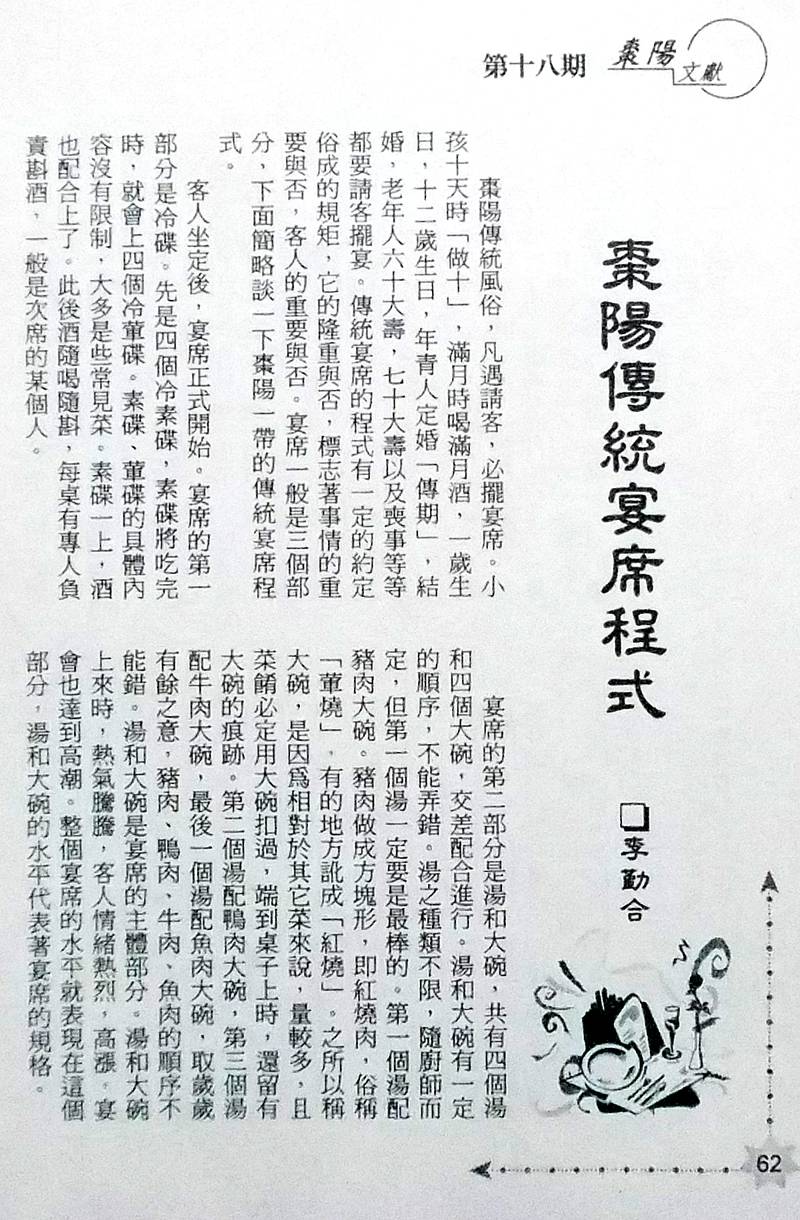 第十八期
棗陽
文獻
棗陽傳統宴席程式
□李勤合
棗陽傳統風俗，凡遇請客，必擺宴席。小
孩十天時「做十」，滿月時喝滿月酒，一歲生
日，十二歲生日，年青人定婚「傳期」，結
婚，老年人六十大壽，七十大壽以及喪事等等
都要請客擺宴。傳統宴席的程式有一定的約定
俗成的規矩，它的隆重與否，標志著事情的重
要與否，客人的重要與否。宴席一般是三個部
分，下面簡略談一下棗陽一帶的傳統宴席程
式。
客人坐定後，宴席正式開始。宴席的第一
部分是冷碟。先是四個冷素碟，素碟將吃完
時，就會上四個冷葷碟。素碟、葷碟的具體內
容沒有限制，大多是些常見菜。素碟一上，酒
也配合上了。此後酒隨喝隨斟，每桌有專人負
責斟酒，一般是次席的某個人。
宴席的第二部分是湯和大碗，共有四個湯
和四個大碗，交差配合進行。湯和大碗有一定
的順序，不能弄錯。湯之種類不限，隨廚師而
定，但第一個湯一定要是最棒的。第一個湯配
豬肉大碗。豬肉做成方塊形，即紅燒肉，俗稱
「葷燒」，有的地方訛成「紅燒」。之所以稱
大碗，是因爲相對於其它菜來說，量較多，且
菜餚必定用大碗扣過，端到桌子上時，還留有
大碗的痕跡。第二個湯配鴨肉大碗，第三個湯
配牛肉大碗，最後一個湯配魚肉大碗，取歲歲
有餘之意，豬肉、鴨肉、牛肉、魚肉的順序不
能錯。湯和大碗是宴席的主體部分。湯和大碗
上來時，熱氣騰騰，客人情緒熱烈，高漲。宴
會也達到高潮。整個宴席的水平就表現在這個
部分，湯和大碗的水平代表著宴席的規格。
62